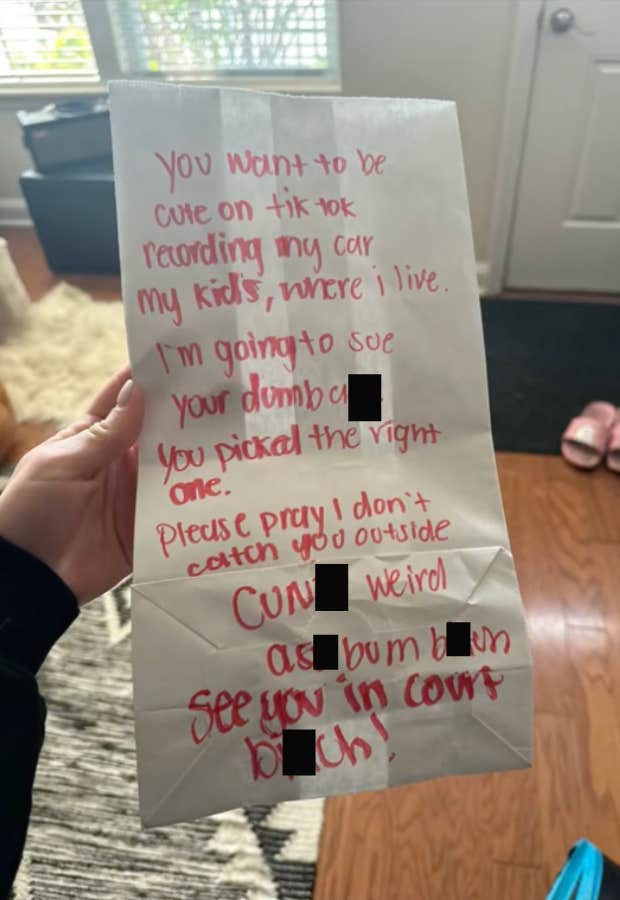 you want to be
cute on tik tok
recording my car
my kid's, where i live.
I'm going to sue
your dumb a
you picked the right
one.
Please pray I don't
catch you outside
CUN weird
as bum b ch
see you in court
b ch!